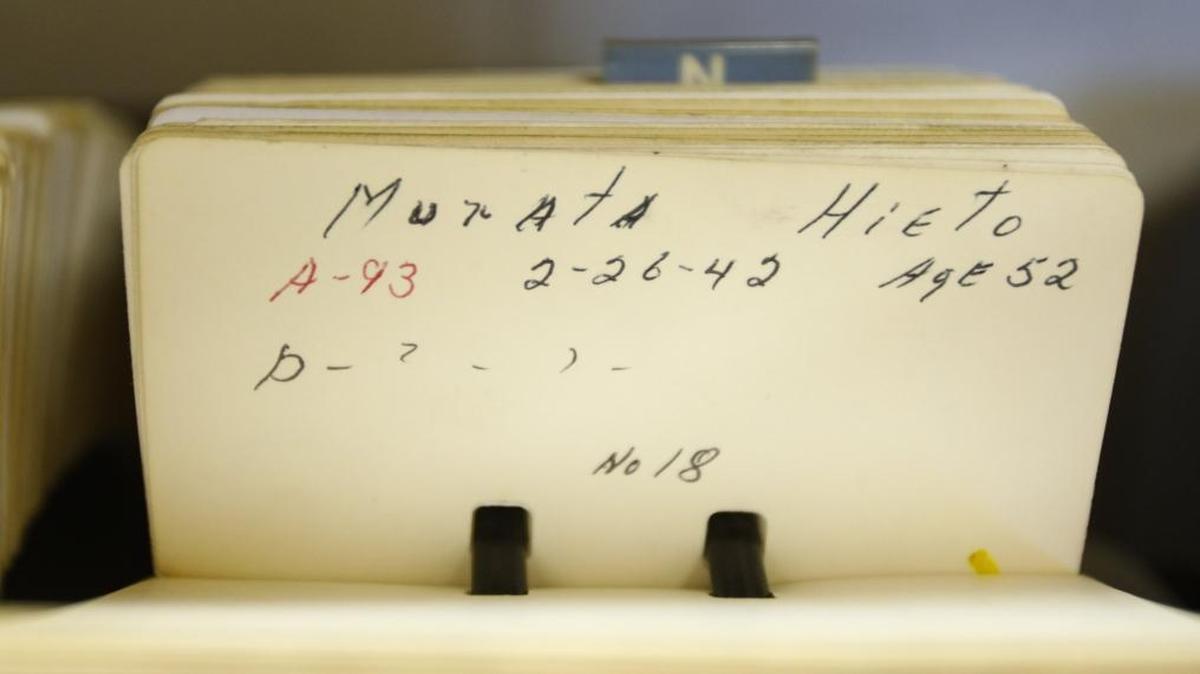 N
Murata Hieto
A-93 2-26-42 Age 52
D - ? - ? -
No 18